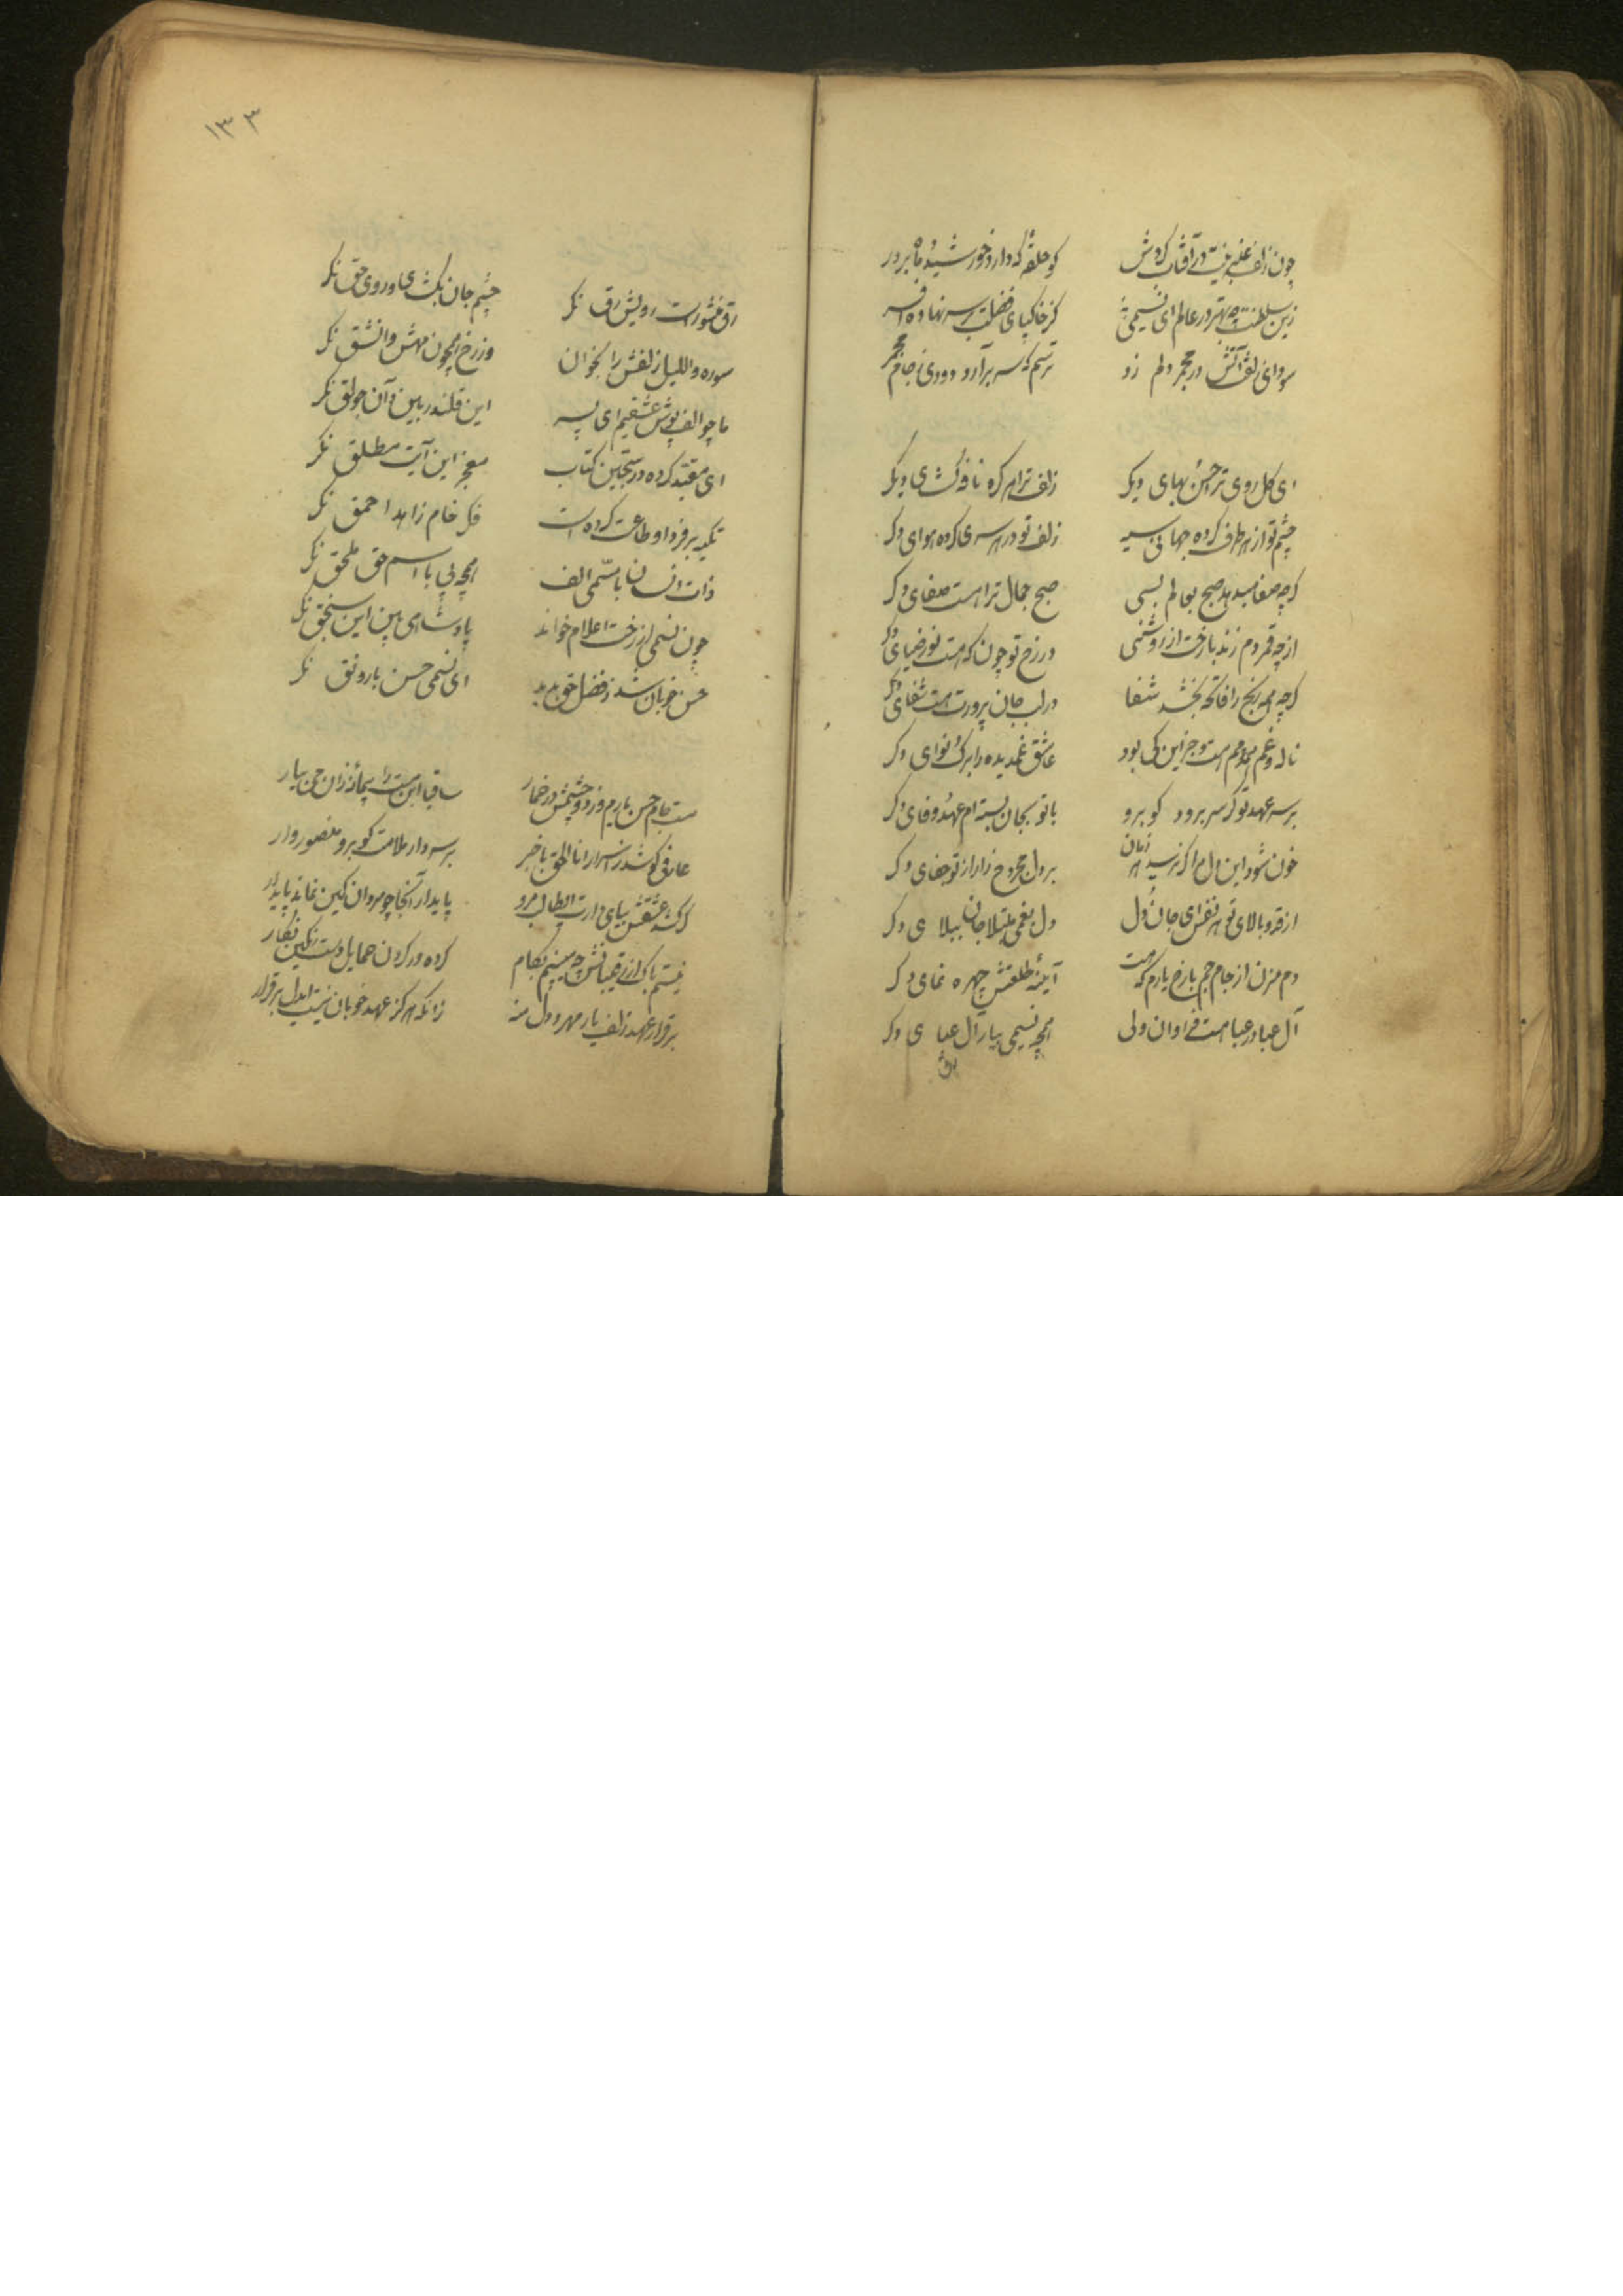 چون زلف عنبرینت در آفتاب گردش کو حلقه که دارد خورشید و ماه بر در
زین سلطنت چه بهتر در عالم ای نسیمی کز خاکپای فضلت بر سر نهاده افسر
سودای زلفت آتش در مجمر دلم زد ترسم که سر برآرد دودی ز جام مجمر
ای گل روی ترا حسن و بهای دیگر زلف ترا هر گره نافه گشای دیگر
چشم تو از هر طرف کرده جهانی سیه زلف تو در هر سری کرده هوای دگر
گرچه صفا میدهد صبح بعالم بسی صبح جمال ترا هست صفای دگر
ارچه قمر دم زند با رخت از روشنی در رخ تو چون که هست نور و ضیای دگر
گرچه همه رنج را فاتحه بخشد شفا در لب جان پرورت هست شفای دگر
ناله و غم همدمم است و جز این کی بود عاشق غمدیده را برگ و نوای دگر
بر سر عهد تو گر سر برود گو برو با تو بجان بسته‌ام عهد و وفای دگر
خون شود این دل مرا گر نرسد هر زمان بر دل مجروح زار از تو جفای دگر
از قد و بالای تو هر نفس ای جان و دل دل بغمی مبتلا جان ببلای دگر
دم مزن از جام جم با رخ یارم که هست آینه طلعتش چهره نمای دگر
آل عبا در عبا هست فراوان ولی همچو نسیمی بیار آل عبای دگر
رق
۱۳۳
چشم جان بگشای و در روی حق نگر
رق منشورات رویش رق نگر
سوره واللیل زلفش را بخوان وز رخ همچون مهش وانشق نگر
ما چو الف پوش عشقیم ای پسر این قلندر بین و آن جولق نگر
ای مقید کرده در سجین کتاب معجز این آیت مطلق نگر
تکیه بر فردا و طاعت کرده است فکر خام زاهد احمق نگر
ذات انسان با مسمی الف همچو بی با اسم حق ملحق نگر
چون نسیمی از رخت اعلام خواند پادشاهی بین این سنجق نگر
حسن خوبان شد ز فضل حق پدید ای نسیمی حسن با رونق نگر
مست جام حسن یاریم وز دو چشمش در خمار ساقیا این مست را پیمانه زان می بیار
عارفی کو شد ز اسرار اناالحق باخبر بر سر دار ملامت گو برو منصوروار
گر سر عشقش بپای دارت ایطالب برد پایدار آنجا چو مردان کین نماند پایدار
نیستم باک از رقیبانش چو می بینم بکام کرده در گردن حمایل دست رنگین نگار
بر قرار عهد زلف یار مهر و دل منه زانکه هرگز عهد خوبان نیست ایدل برقرار